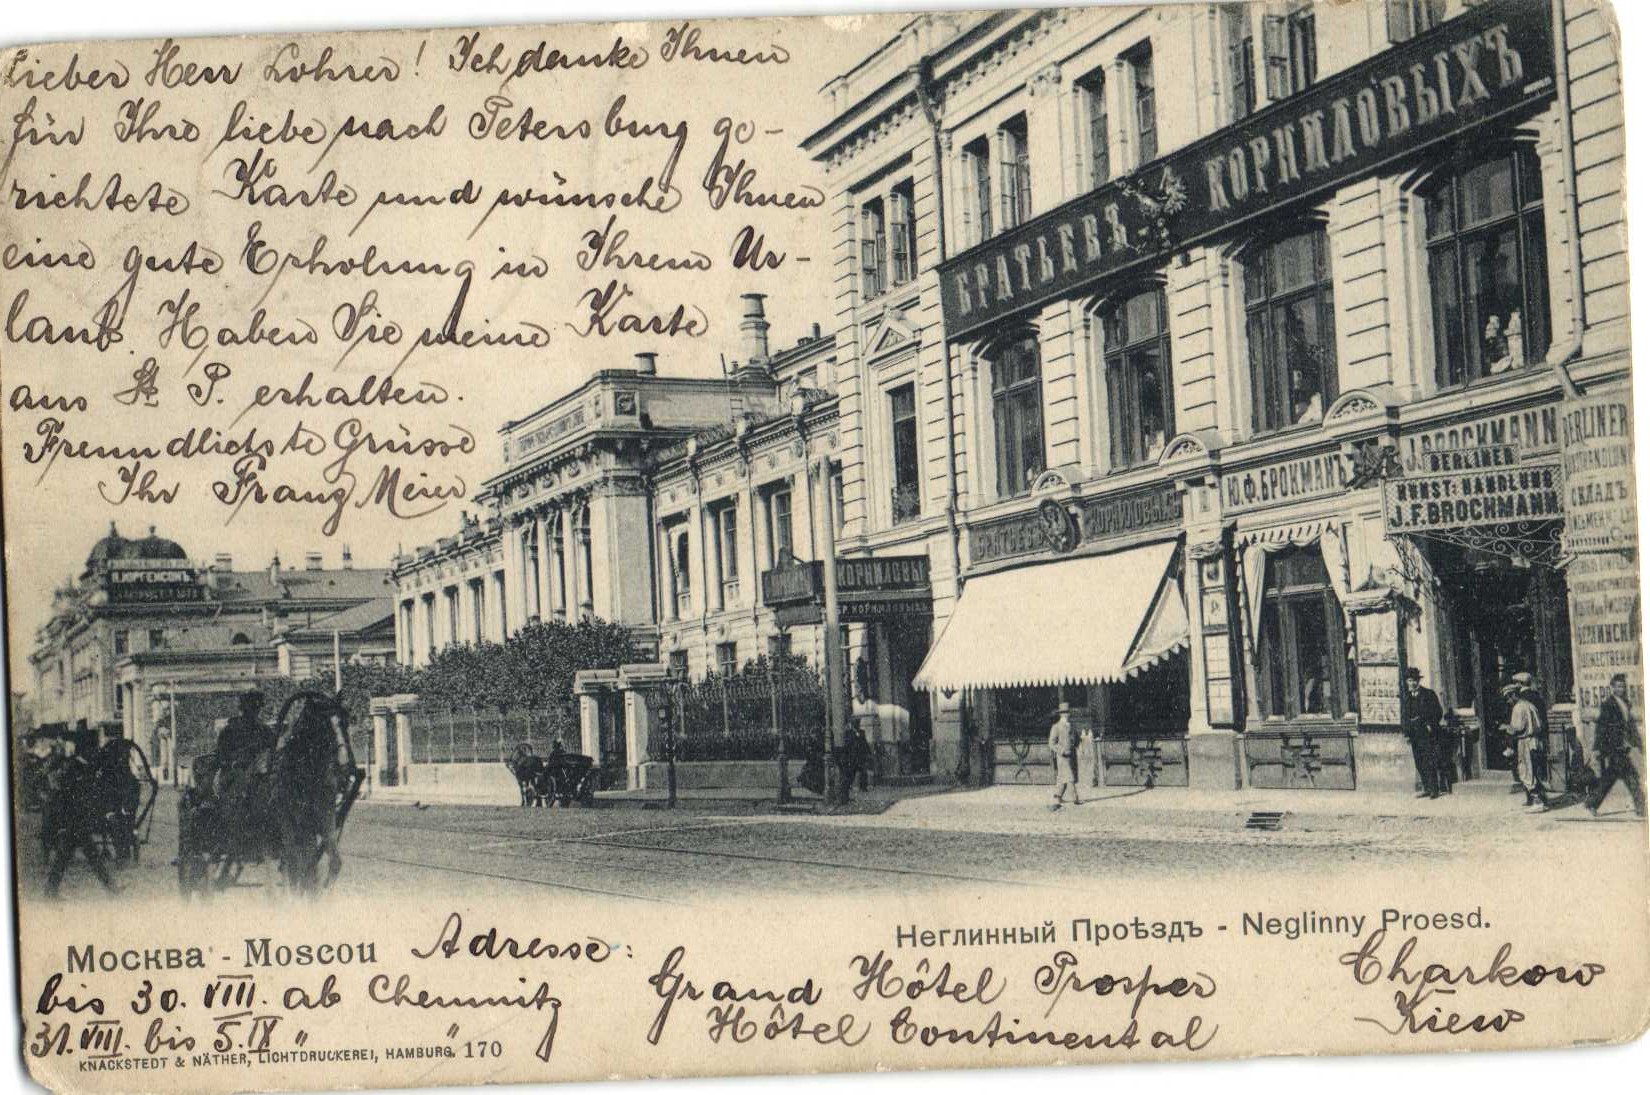 Lieber Herr Lohrer! Ich danke Ihnen
für Ihre liebe nach Petersburg ge-
richtete Karte und wünsche Ihnen
eine gute Erholung in Ihrem Ur-
laub. Haben Sie meine Karte
aus St. P. erhalten.
Freundlichste Grüsse
Ihr Franz Meier
БРАТЬЕВЪ КОРНИЛОВЫХЪ
J. BROCKMANN
BERLINER
Ю.Ф. БРОКМАНЪ
KUNST-HANDLUNG
J.F. BROCHMANN.
BERLINER
СКЛАДЪ
БРАТЬЕВЪ КОРНИЛОВЫХЪ
КОРНИЛОВЫ
БР. КОРНИЛОВЫХЪ
П. ЮРГЕНСОНЪ
Неглинный Проѣздъ - Neglinny Proesd.
Москва - Moscou Adresse:
bis 30. VIII. ab Chemnitz Grand Hôtel Prosper Charkow
31. VIII. bis 5. IX " " Hôtel Continental Kiew
KNACKSTEDT & NÄTHER, LICHTDRUCKEREI, HAMBURG. 170